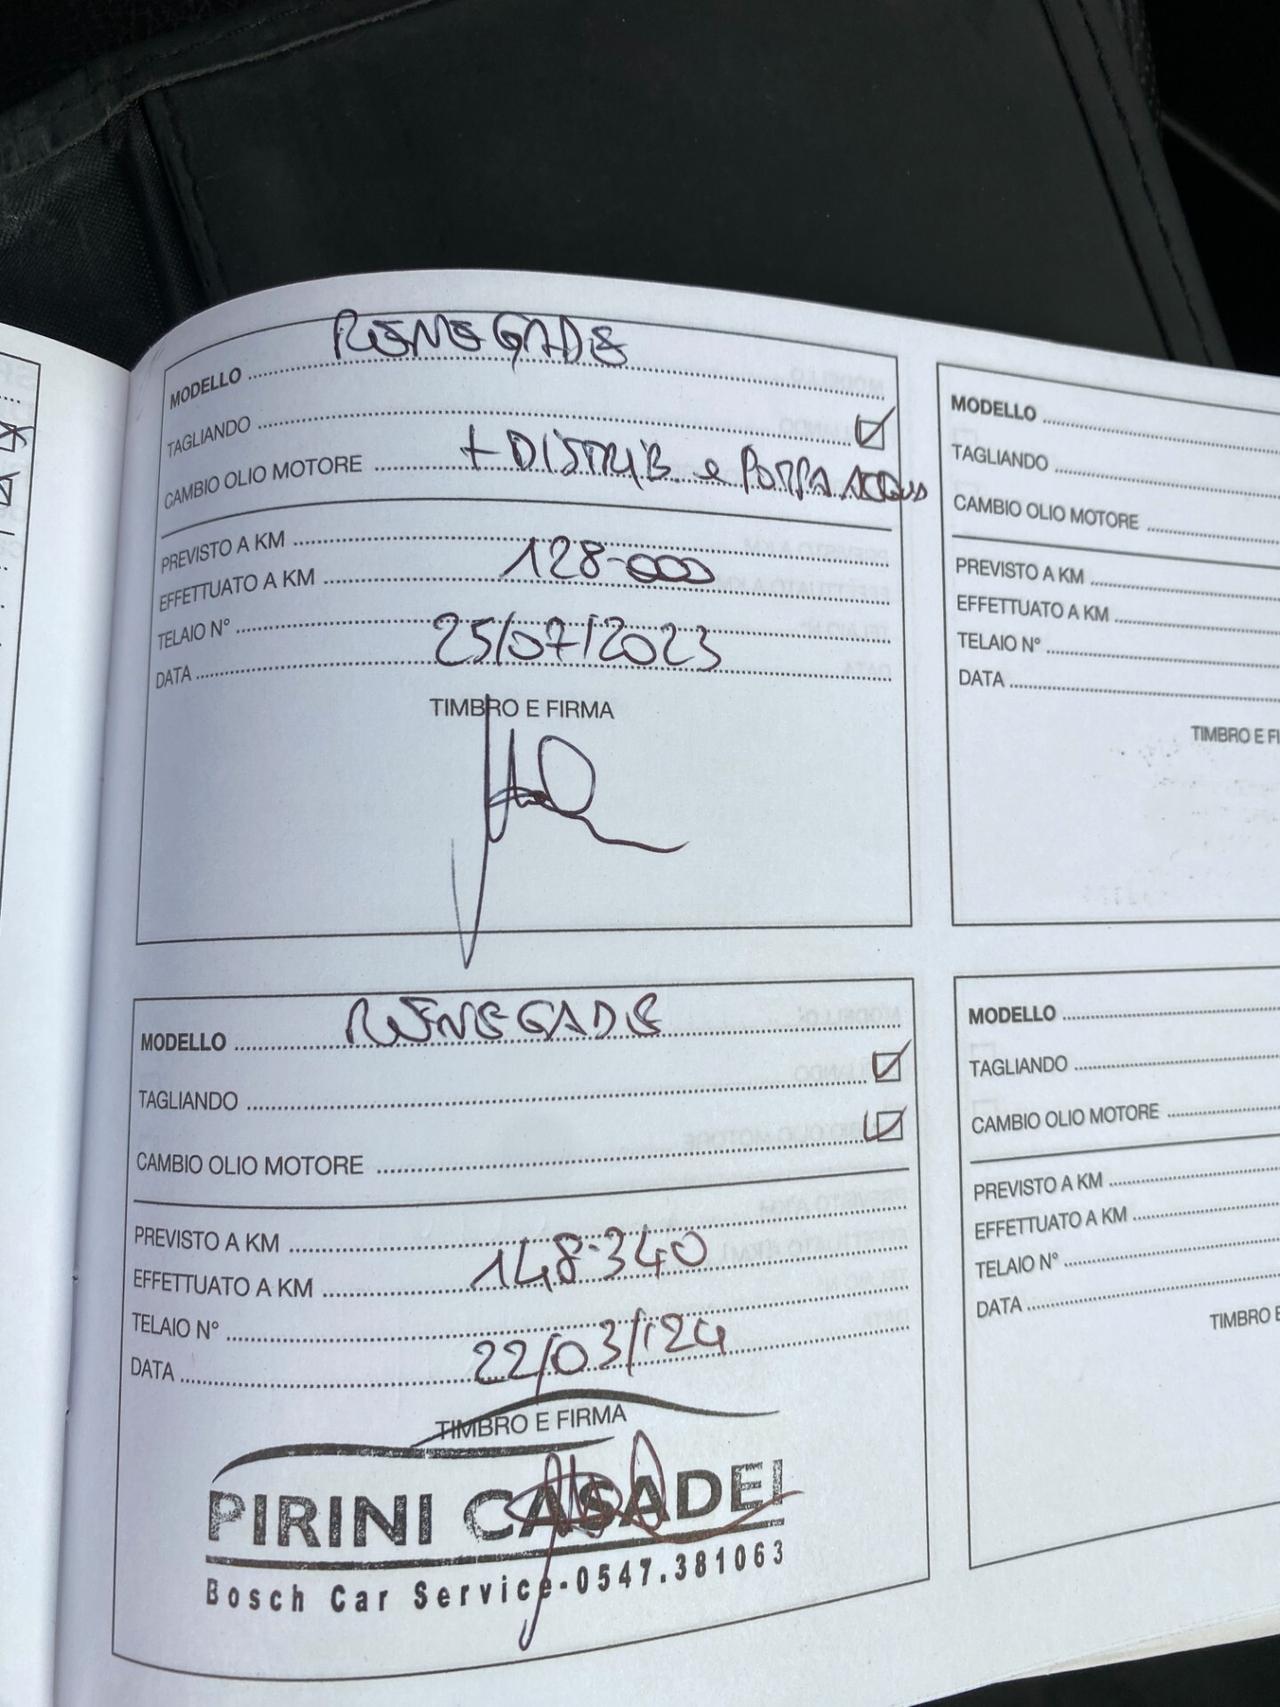 MODELLO RENEGADE
TAGLIANDO
CAMBIO OLIO MOTORE + DISTRIB. e POMPA ACQUA
PREVISTO A KM
EFFETTUATO A KM 128.000
TELAIO N°
DATA 25/07/2023
TIMBRO E FIRMA
MODELLO RENEGADE
TAGLIANDO
CAMBIO OLIO MOTORE
PREVISTO A KM
EFFETTUATO A KM 148.340
TELAIO N°
DATA 22/03/124
TIMBRO E FIRMA
PIRINI CASADEI
Bosch Car Service-0547.381063
MODELLO
TAGLIANDO
CAMBIO OLIO MOTORE
PREVISTO A KM
EFFETTUATO A KM
TELAIO N°
DATA
TIMBRO E FI
MODELLO
TAGLIANDO
CAMBIO OLIO MOTORE
PREVISTO A KM
EFFETTUATO A KM
TELAIO N°
DATA
TIMBRO E